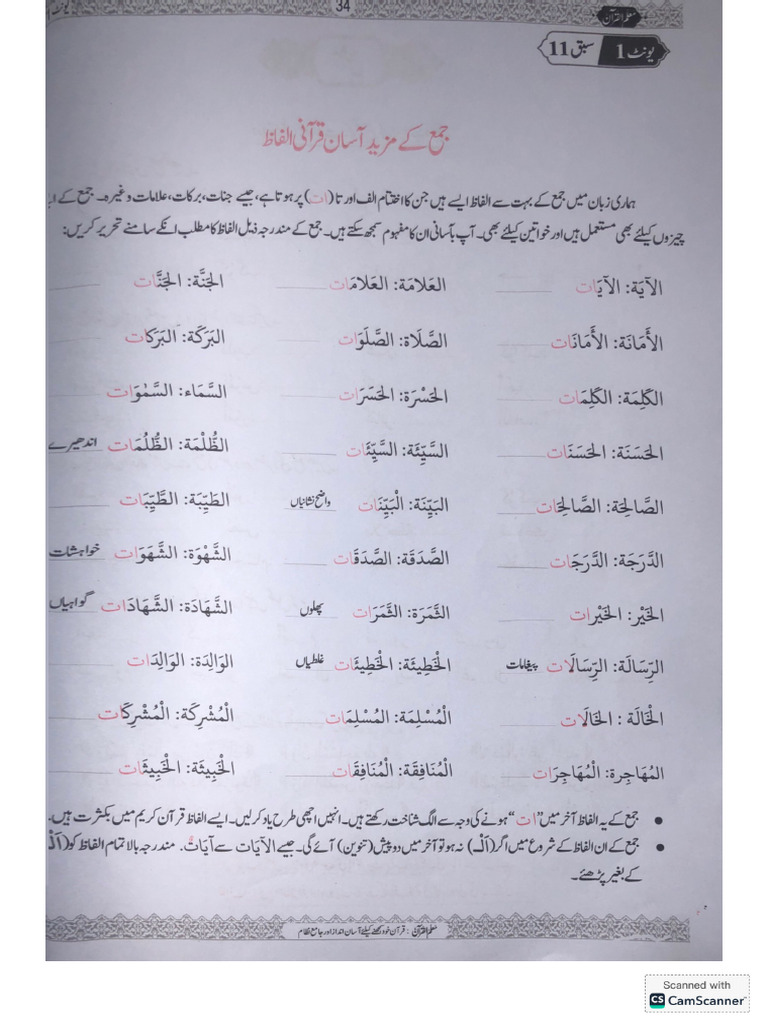 معلم القرآن
34
یونٹ 1 سبق 11
جمع کے مزید آسان قرآنی الفاظ
ہماری زبان میں جمع کے بہت سے الفاظ ایسے ہیں جن کا اختتام الف اور تا (ات) پر ہوتا ہے، جیسے جنات، برکات، علامات وغیرہ۔ جمع کے
چیزوں کیلئے بھی مستعمل ہیں اور خواتین کیلئے بھی۔ آپ بآسانی ان کا مفہوم سمجھ سکتے ہیں۔ جمع کے مندرجہ ذیل الفاظ کا مطلب انکے سامنے تحریر کریں:
الآيَة: الآيَات العَلامَة: العَلامَات الجَنَّة: الجَنَّات
الأَمَانَة: الأَمَانَات الصَّلَاة: الصَّلَوَات البَرَكَة: البَرَكَات
الكَلِمَة: الكَلِمَات الحَسْرَة: الحَسَرَات السَّمَاء: السَّمٰوَات
الحَسَنَة: الحَسَنَات السَّيِّئَة: السَّيِّئَات الظُّلْمَة: الظُّلُمَات اندھیرے
الصَّالِحَة: الصَّالِحَات البَيِّنَة: الْبَيِّنَات واضح نشانیاں الطَّيِّبَة: الطَّيِّبَات
الدَّرَجَة: الدَّرَجَات الصَّدَقَة: الصَّدَقَات الشَّهْوَة: الشَّهَوَات خواہشات
الخَيْر: الخَيْرات الثَّمَرَة: الثَّمَرَات پھلوں الشَّهَادَة: الشَّهَادَات گواہیاں
الرِّسَالَة: الرِّسَالَات پیغامات الْخَطِيئَة: الْخَطِيئَات غلطیاں الوَالِدَة: الوَالِدَات
الْخَالَة : الْخَالَات الْمُسْلِمَة: الْمُسْلِمَات الْمُشْرِكَة: الْمُشْرِكَات
المُهَاجِرة: الْمُهَاجِرَات الْمُنَافِقَة: الْمُنَافِقَات الْخَبِيثَة: الْخَبِيثَات
● جمع کے یہ الفاظ آخر میں ”ات“ ہونے کی وجہ سے الگ شناخت رکھتے ہیں۔ انہیں اچھی طرح یاد کر لیں۔ ایسے الفاظ قرآن کریم میں بکثرت ہیں۔
● جمع کے ان الفاظ کے شروع میں اگر (اَلْ) نہ ہو تو آخر میں دو پیش (تنوین) آئے گی۔ جیسے الآيَات سے آيَاتٌ. مندرجہ بالا تمام الفاظ کو (اَلْ)
کے بغیر پڑھئے۔
معلم القرآن : قرآن خود سمجھنے کیلئے آسان انداز اور جامع نظام
Scanned with
CS CamScanner